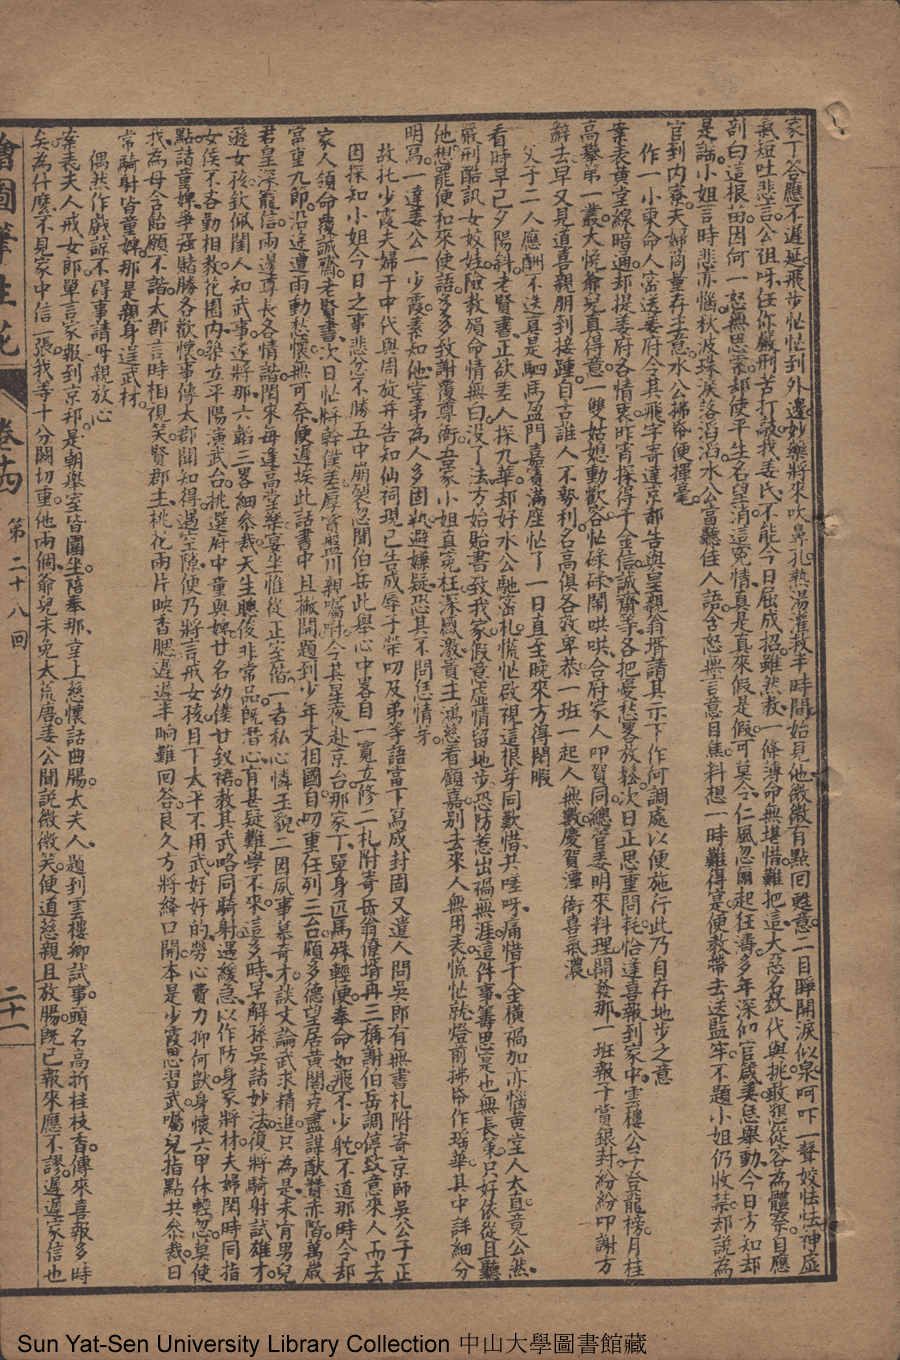 家丁答應不遲延飛步忙忙到外邊妙藥將來吹鼻孔熱湯灌救半時間始見他微微有點回甦意二目睜開淚似泉呵吓一聲姣怯怯神虛
氣短吐悲言公祖呀任你嚴刑苦打破我姜氏不能今日屈成招雖然救一條薄命無堪惜難把這大惡名
剖白這根苗因何一
官到内寮夫婦商量存主意水公拂箋便揮毫
作一小柬命人密送姜府令其飛字寄達京都告與皇親翁壻請其示下作何調處以便施行此乃自存地步之意
案表黃堂線暗通却提姜府各情衷昨宵探得千金信誠齋等各把憂愁畧放鬆次日正思重問耗恰逢喜報到家中雲樓公子登龍榜月桂
高攀弟一叢大悅爺兒真得意一雙姑媳動歡容忙碌碌鬧哄哄合府家人叩賀同總管姜明來料理開發那一班報子賞銀封紛紛叩謝方
辭去早又見道喜親朋到接踵自古誰人不勢利名高俱各效卑恭一班一起人無數慶賀潭衙喜氣濃
父子二人應酬不迭真是駟馬盈門嘉賓滿座忙了一日直至晚來方得閑暇
看時早已夕陽斜老賢書正欲差人探九華却好水公馳密札慌忙啟視這根芽同歎惜共嗟呀痛惜千金橫禍加亦惱黃堂人太直竟公然
嚴刑酷訊女姣娃險教殞命情無曰沒了法方始貽書致我家假意虛情留地步恐防惹出禍無涯這件事籌思定也無長策只好依從且聽
他想罷便和來使語多多致謝覆尊衙吾家小姐真冤枉深感激貴主鴻慈看顧嘉別去來人無用表慌忙就燈前拂箋作瑤華其中詳細分
明寫一達姜公一少霞素知他堂弟為人多固執避嫌疑恐其不問恁情芽
故托少霞夫婦于中代與周旋并告知仙祠現已告成辱子榮叨及弟等語當下寫成封固又遣人問吳郎有無書札附寄京師吳公子正
因探知小姐今日之事悲忿不勝五中崩裂忽聞伯岳此舉心中畧自一寬立修二札附寄岳翁僚壻再三稱謝伯岳調停致意來人而去
家人領命覆誠齋老賢書次日忙將幹僕差厚賞盤川親囑咐令其星夜赴京台那家丁單身匹馬殊輕便奉命如飛不少躭不道那時今却
當重九節沿途遭雨動愁懷無可奈便遲埃此話書中且撇開題到少年文相國自叨重任列三台頗多德望居黃閣克盡謀猷贊赤階萬歲
君皇深寵信兩邊尊長各情諧閑來每逢高堂華宴坐惟從正室偕一者私心憐玉貌二因夙事慕奇才談文論武求精進只為是未有男兒
遜女孩欽佩閨人知武事遂將那六韜三畧細參裁天生聰俊非常品既潛心有甚疑難學不來這多時早解孫吳諸妙法復將騎射試雄才
女侯不吝勤相教花園内築立平陽演武台挑選府中童與婢廿名幼僕廿釵裙教其武略同騎射遇緩急以作防身家將材夫婦閑時同指
點諸童婢爭強賭勝各歡懷事傳太郡聞知得遇空隙便乃將言戒女孩目下太平不用武好好的勞心費力抑何獃身懷六甲休輕忽莫使
我為母含飴願不諧太郡言時相視笑賢郡主桃花兩片映香腮遲遲半晌難回答良久方將絳口開本是少霞思習武囑兒指點共參裁日
常騎射皆童婢那是親身逞武材
偶然作戲訴不碍事請母親放心
案表夫人戒女郎單言家報到京邦是朝舉室皆團坐陪奉那堂上慈懷話曲腸太夫人題到雲樓鄉試事頭名高折桂枝香傳來喜報多時
矣為什麼不見家中信一張我等十分關切重他兩個爺兒未免太荒唐姜公聞說微微笑便道慈親且放腸既已報來應不謬遲遲家信也
繪圖筆生花 卷十四 第二十八回 二十一
Sun Yat-Sen University Library Collection 中山大學圖書館藏